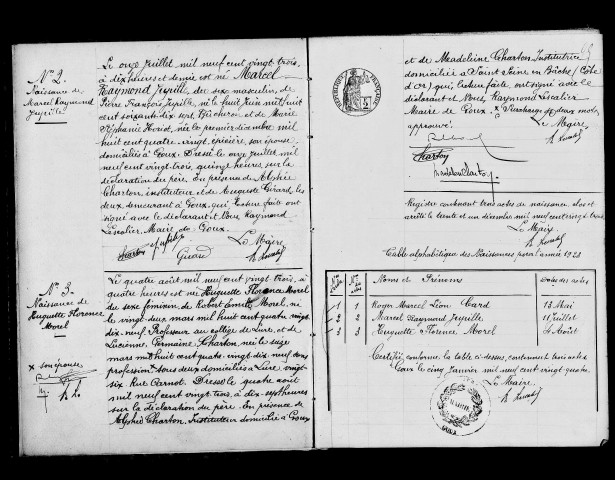 N° 2.
Naissance de
Marcel Raymond
Jeyille
Le onze juillet mil neuf cent vingt trois,
à dix heures et demie est né Marcel
Raymond Jeyille, du sexe masculin, de
Pierre François Jeyille, né le huit juin mil huit
cent soixante dix sept, Bûcheron et de Marie
né le premier décembre mil
huit cent quatre-vingt, épicière, son épouse
domiciliés à Goux. Dressé le onze juillet mil
neuf cent vingt trois, quinze heures, sur la
déclaration du père, en présence de Alphée
Charton, instituteur et de Auguste Girard, les
deux demeurant à Goux, qui, lecture faite ont
signé avec le déclarant et Nous Raymond
Lescalier, Maire de Goux.
Charton Girard
Le Maire
N° 3.
Naissance de
Huguette Florence
Morel
x son épouse
Le quatre août mil neuf cent vingt trois, à
quatre heures est née Huguette Florence Morel
du sexe féminin, de Robert Emile Morel, né
le vingt deux mars mil huit cent quatre vingt
dix-neuf, Professeur au collège de Lure, et de
Lucienne Germaine Charton née le seize
mars mil huit cent quatre-vingt-dix neuf sans
profession x tous deux domiciliés à Lure, vingt-
six Rue Carnot. Dressé le quatre août
mil neuf cent vingt trois, à dix-sept heures
sur la déclaration du père. En présence de
Alphée Charton, Instituteur domicilié à Goux
et de Madeleine Charton Institutrice
domiciliée à Saint Seine en Bâche (Côte
d'Or) qui, lecture faite, ont signé avec le
déclarant et Nous, Raymond Lescalier
Maire de Goux. x Surcharge de deux mots
approuvé.
Le Maire,
Charton
Madeleine Charton
REPUBLIQUE FRANÇAISE
Registre contenant trois actes de naissance, clos et
arrêté le trente et un décembre mil neuf cent vingt trois.
Le Maire
Table alphabétique des Naissances pour l'année 1923
Noms et Prénoms Dates des actes
1 1 Roger Marcel Léon Card 13 Mai
2 2 Marcel Raymond Jeyille 11 juillet
3 3 Huguette Florence Morel 4 Août
Certifié conforme la table ci-dessus, contenant trois actes
Goux le cinq janvier mil neuf cent vingt quatre
Le Maire.